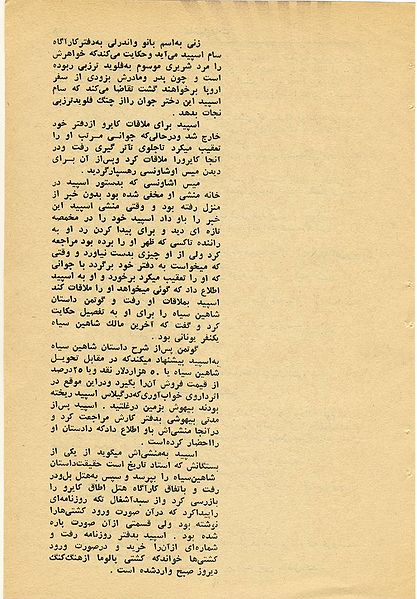 زنی به‌اسم بانو واندرلی به‌دفترکارآگاه
سام اسپید می‌آید وحکایت می‌کندکه خواهرش
را مرد شریری موسوم به‌فلوید ترزبی ربوده
است و چون پدر ومادرش بزودی از سفر
اروپا برخواهند گشت تقاضا می‌کند که سام
اسپید این دختر جوان رااز چنگ فلویدترزبی
نجات بدهد .
اسپید برای ملاقات کایرو ازدفتر خود
خارج شد ودرحالی‌که جوانی مرتب او را
تعقیب میکرد تاجلوی تآتر گیری رفت ودر
آنجا کایرورا ملاقات کرد وپس‌از آن برای
دیدن میس اوشاونسی رهسپارگردید .
میس اشاونسی که بدستور اسپید در
خانه منشی او مخفی شده بود بدون خبر از
منزل رفته بود و وقتی منشی اسپید این
خبر را باو داد اسپید خود را در مخمصه
تازه ای دید و برای پیدا کردن رد او به
راننده تاکسی که ظهر او را برده بود مراجعه
کرد ولی از او چیزی بدست نیاورد و وقتی
که میخواست به دفتر خود برگردد با جوانی
که او را تعقیب میکرد برخورد و او به اسپید
اطلاع داد که گوتی میخواهد او را ملاقات کند
اسپید بملاقات او رفت و گوتمن داستان
شاهین سیاه را برای او به تفصیل حکایت
کرد و گفت که آخرین مالك شاهین سیاه
یکنفر یونانی بود .
گوتمن پس‌از شرح داستان شاهین سیاه
به‌اسپید پیشنهاد میکندکه در مقابل تحویل
شاهین سیاه یا ۵۰ هزاردلار نقد ویا ۲۵درصد
از قیمت فروش آن‌را بگیرد ودراین موقع در
اثرداروی خواب‌آوری‌که‌درگیلاس اسپید ریخته
بودند بیهوش بزمین درغلتید . اسپید پس‌از
مدتی بیهوشی بدفتر کارش مراجعت کرد و
درآنجا منشی‌اش باو اطلاع دادکه دادستان او
رااحضار کرده‌است .
اسپید به‌منشی‌اش میگوید از یکی از
بستگانش که استاد تاریخ است حقیقت‌داستان
شاهین‌سیاه را بپرسد و سپس به‌هتل بل‌ودر
رفت و باتفاق کارآگاه هتل اطاق کایرو را
بازرسی کرد واز سبدآشغال تکه روزنامه‌ای
راپیداکرد که درآن صورت ورود کشتی‌هارا
نوشته بود ولی قسمتی ازآن صورت پاره
شده بود . اسپید بدفتر روزنامه رفت و
شماره‌ای ازآن‌را خرید و درصورت ورود
کشتی‌ها خواندکه کشتی پالوما ازهنگ‌کنگ
دیروز صبح واردشده است .